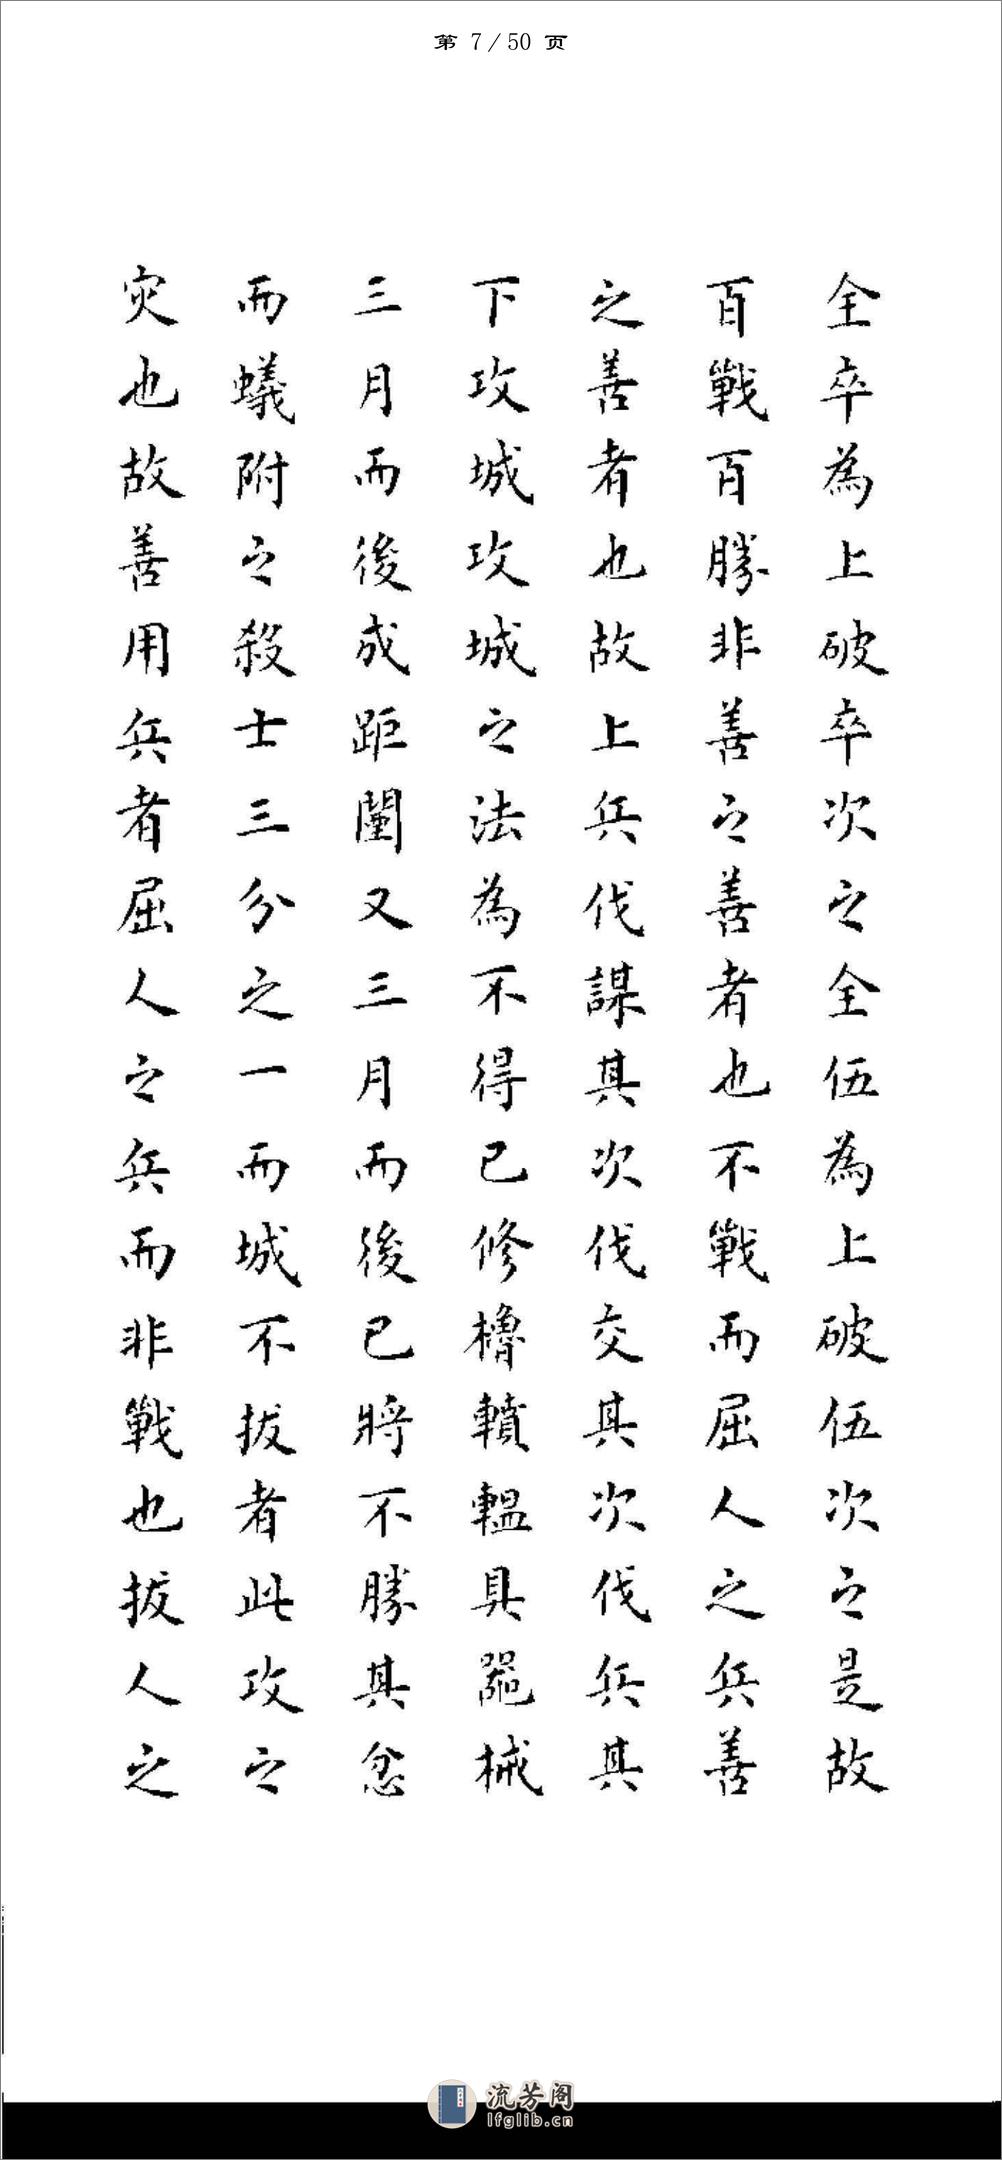 第 7/50 页
全卒為上破卒次之全伍為上破伍次之是故
百戰百勝非善之善者也不戰而屈人之兵善
之善者也故上兵伐謀其次伐交其次伐兵其
下攻城攻城之法為不得已修櫓轒轀具器械
三月而後成距闉又三月而後已將不勝其忿
而蟻附之殺士三分之一而城不拔者此攻之
灾也故善用兵者屈人之兵而非戰也拔人之
流芳阁
lfglib.cn